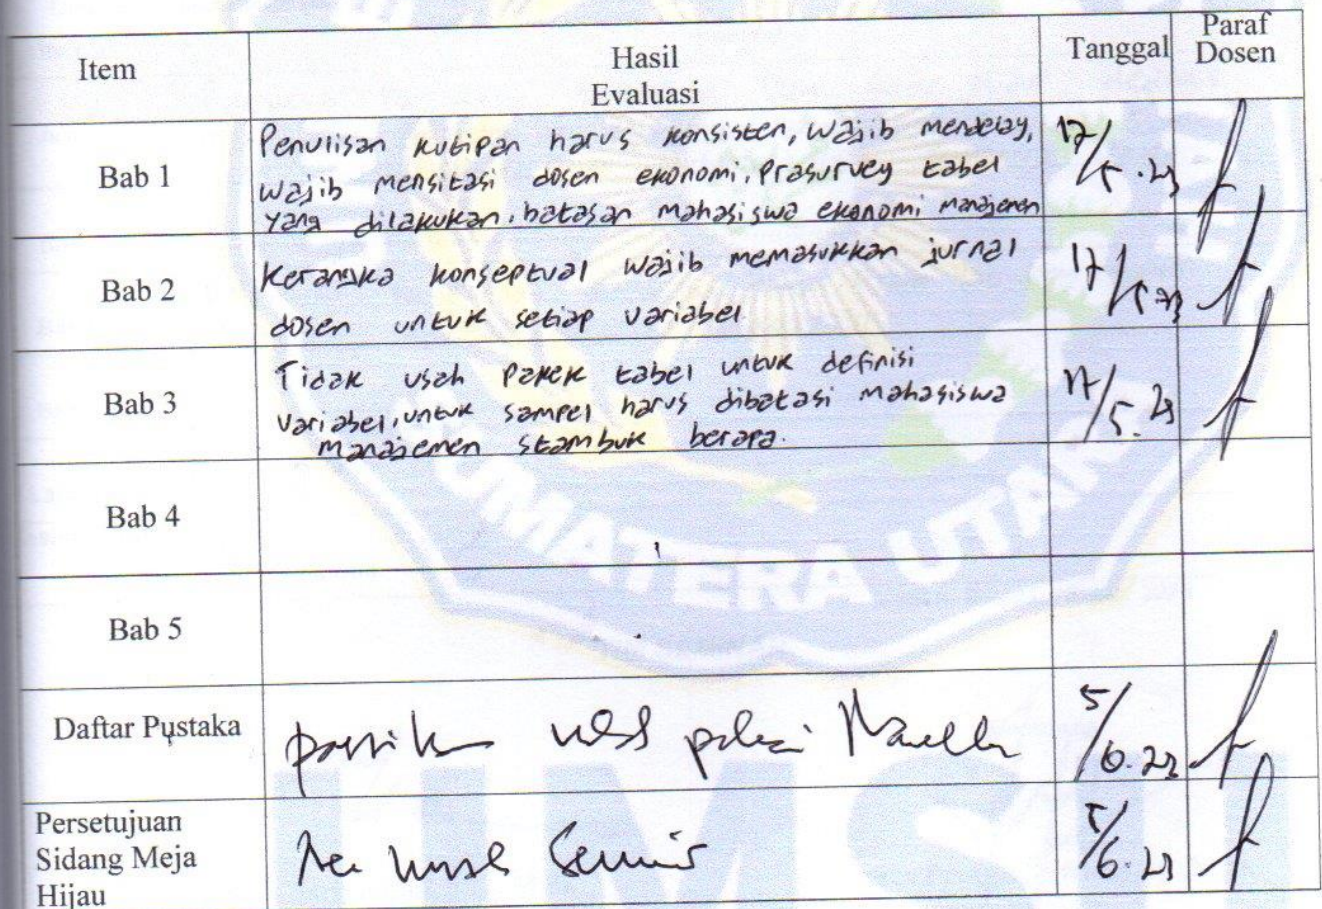 Item
Hasil
Evaluasi
Tanggal
Paraf
Dosen
Bab 1
Penulisan kutipan harus konsisten, wajib mendelay,
wajib mensitasi dosen ekonomi, prasurvey tabel
yang dilakukan, batasan mahasiswa ekonomi manajemen
17/5.23
Bab 2
Kerangka konseptual wajib memasukkan jurnal
dosen untuk setiap variabel
17/5.23
Bab 3
Tidak usah pakek tabel untuk definisi
variabel, untuk sampel harus dibatasi mahasiswa
manajemen stambuk berapa.
17/5.23
Bab 4
Bab 5
Daftar Pustaka
5/6.23
Persetujuan
Sidang Meja
Hijau
5/6.23
SUMATERA UTARA
UMSU